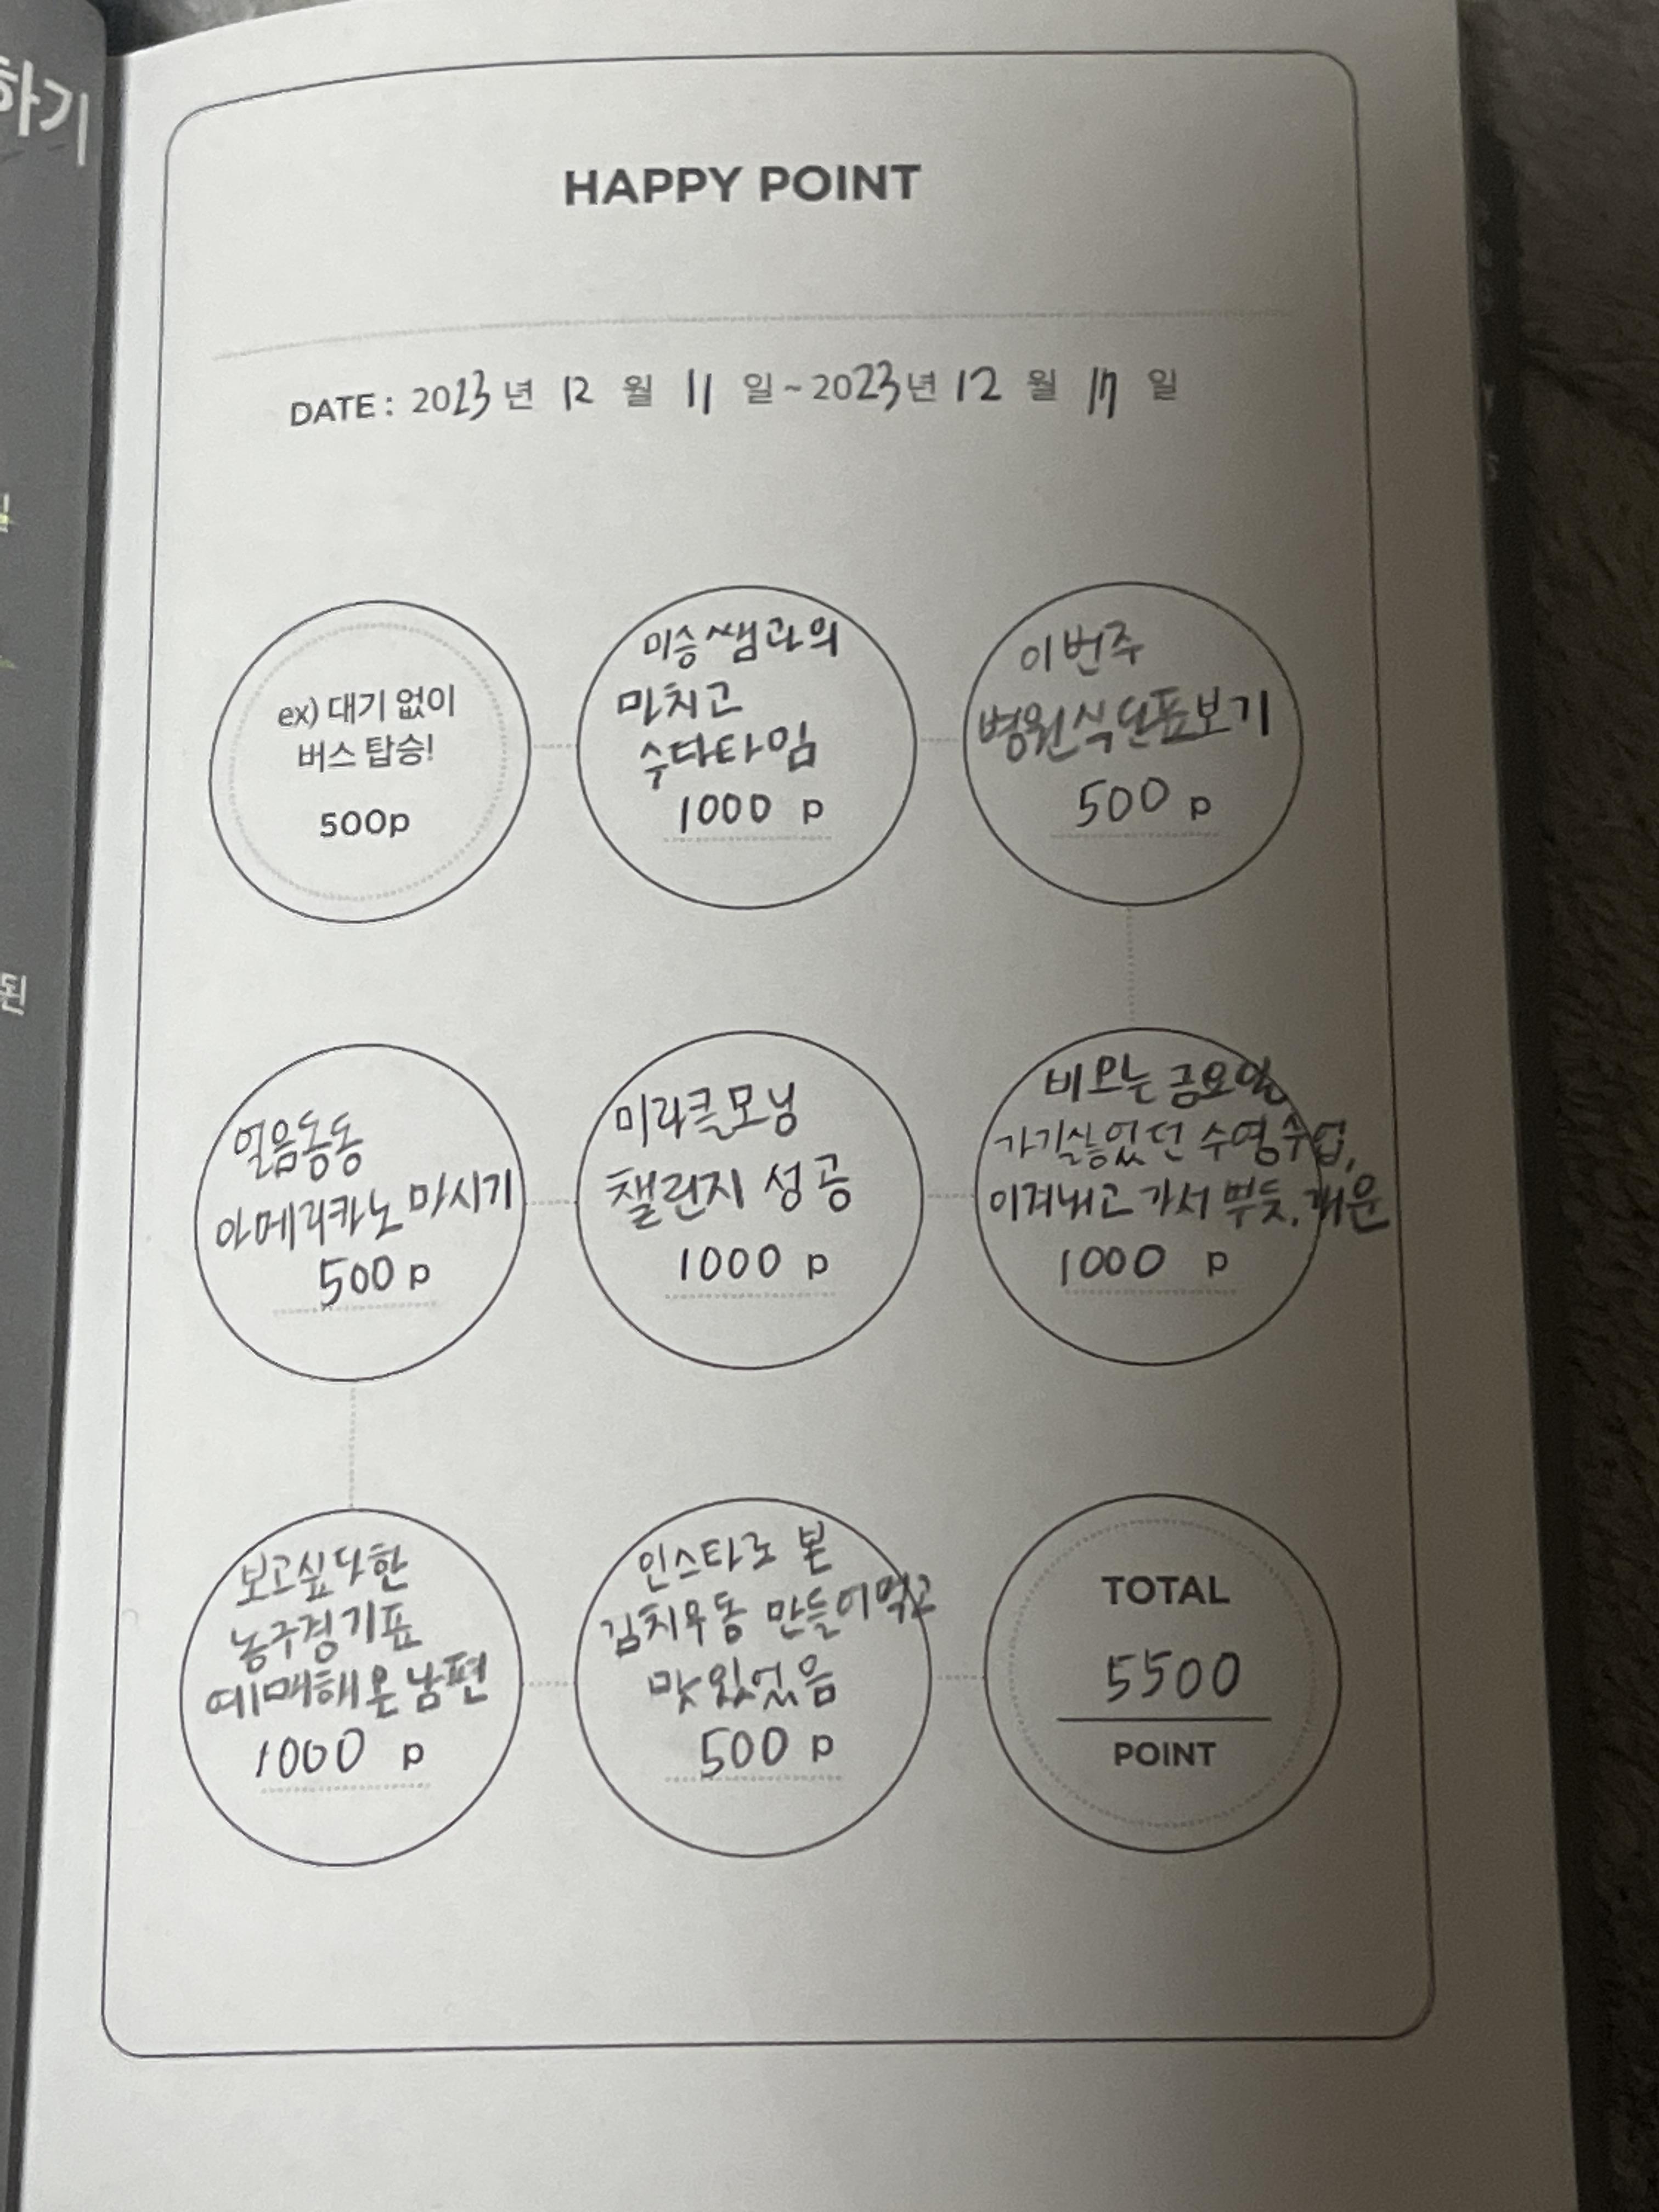 하기
HAPPY POINT
DATE : 2023년 12 월 11 일 ~ 2023년 12 월 17 일
ex) 대기 없이
버스 탑승!
500p
미승쌤과의
마치고
수다타임
1000 p
이번주
병원식단표보기
500 p
얼음동동
아메리카노 마시기
500 p
미라클모닝
챌린지 성공
1000 p
비오는 금요일
가기싫었던 수영수업,
이겨내고 가서 뿌듯. 개운
1000 p
보고싶다한
농구경기표
예매해온 남편
1000 p
인스타로 본
김치우동 만들어먹고
맛있었음
500 p
TOTAL
5500
POINT
된